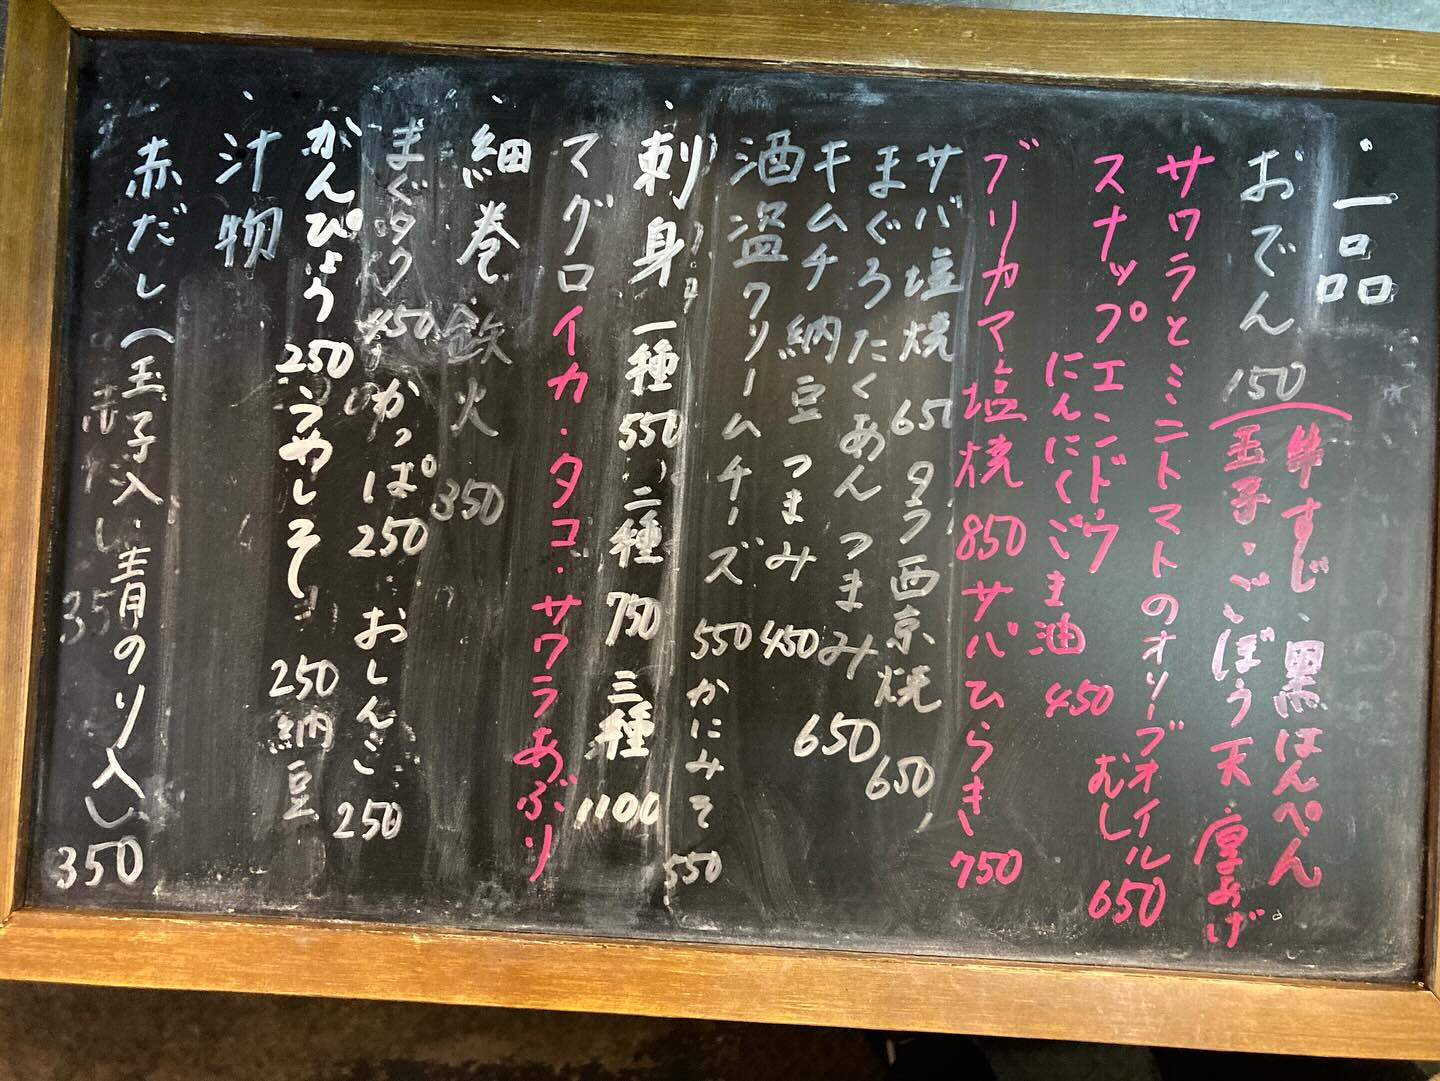 ・一品
おでん 150（牛すじ、黒はんぺん
玉子・ごぼう天、厚あげ
サワラとミニトマトのオリーブオイルむし 650
スナップエンドウ
にんにくごま油 450
ブリカマ塩焼 850 サバひらき 750
サバ塩焼 650 タラ西京焼 650
まぐろたくあんつまみ 650
キムチ納豆つまみ 450
酒盗クリームチーズ 550 かにみそ 550
・刺身 一種 550 二種 750 三種 1100
マグロ イカ・タコ・サワラあぶり
・細巻 鉄火 350
まぐタク 450 かっぱ 250 おしんこ 250
かんぴょう 250 うめしそ 250 納豆
・汁物
赤だし（玉子入り・青のり入り） 350